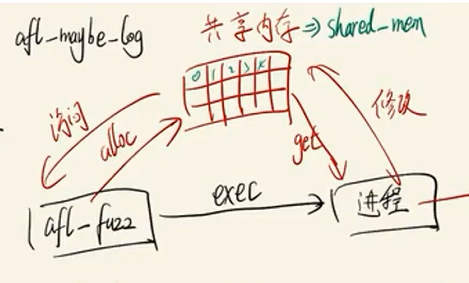 afl_maybe_log
共享内存⇒shared_mem
0 1 2 3 k
访问
alloc
get
修改
afl-fuzz
exec
进程